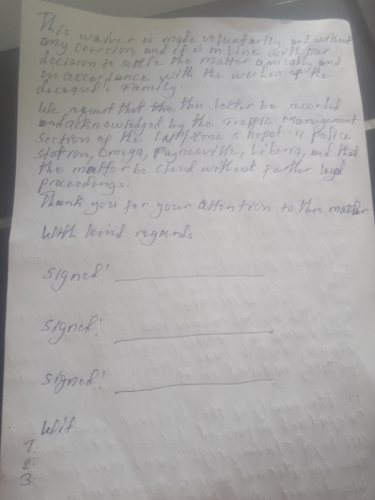 This waiver is made voluntarily, and without
any coercion, and it is in line with our
decision to settle the matter amicably and
in accordance with the wishes of the
deceased's Family.
We request that the this letter be recorded
and acknowledged by the Traffic Management
Section of the LNP/Zone 5 Depot-4 Police
Station, Omega, Paynesville, Liberia, and that
the matter be closed without further legal
proceedings.
Thank you for your attention to this matter.
With kind regards
Signed:
Signed:
Signed:
Wit
1:
2:
3: